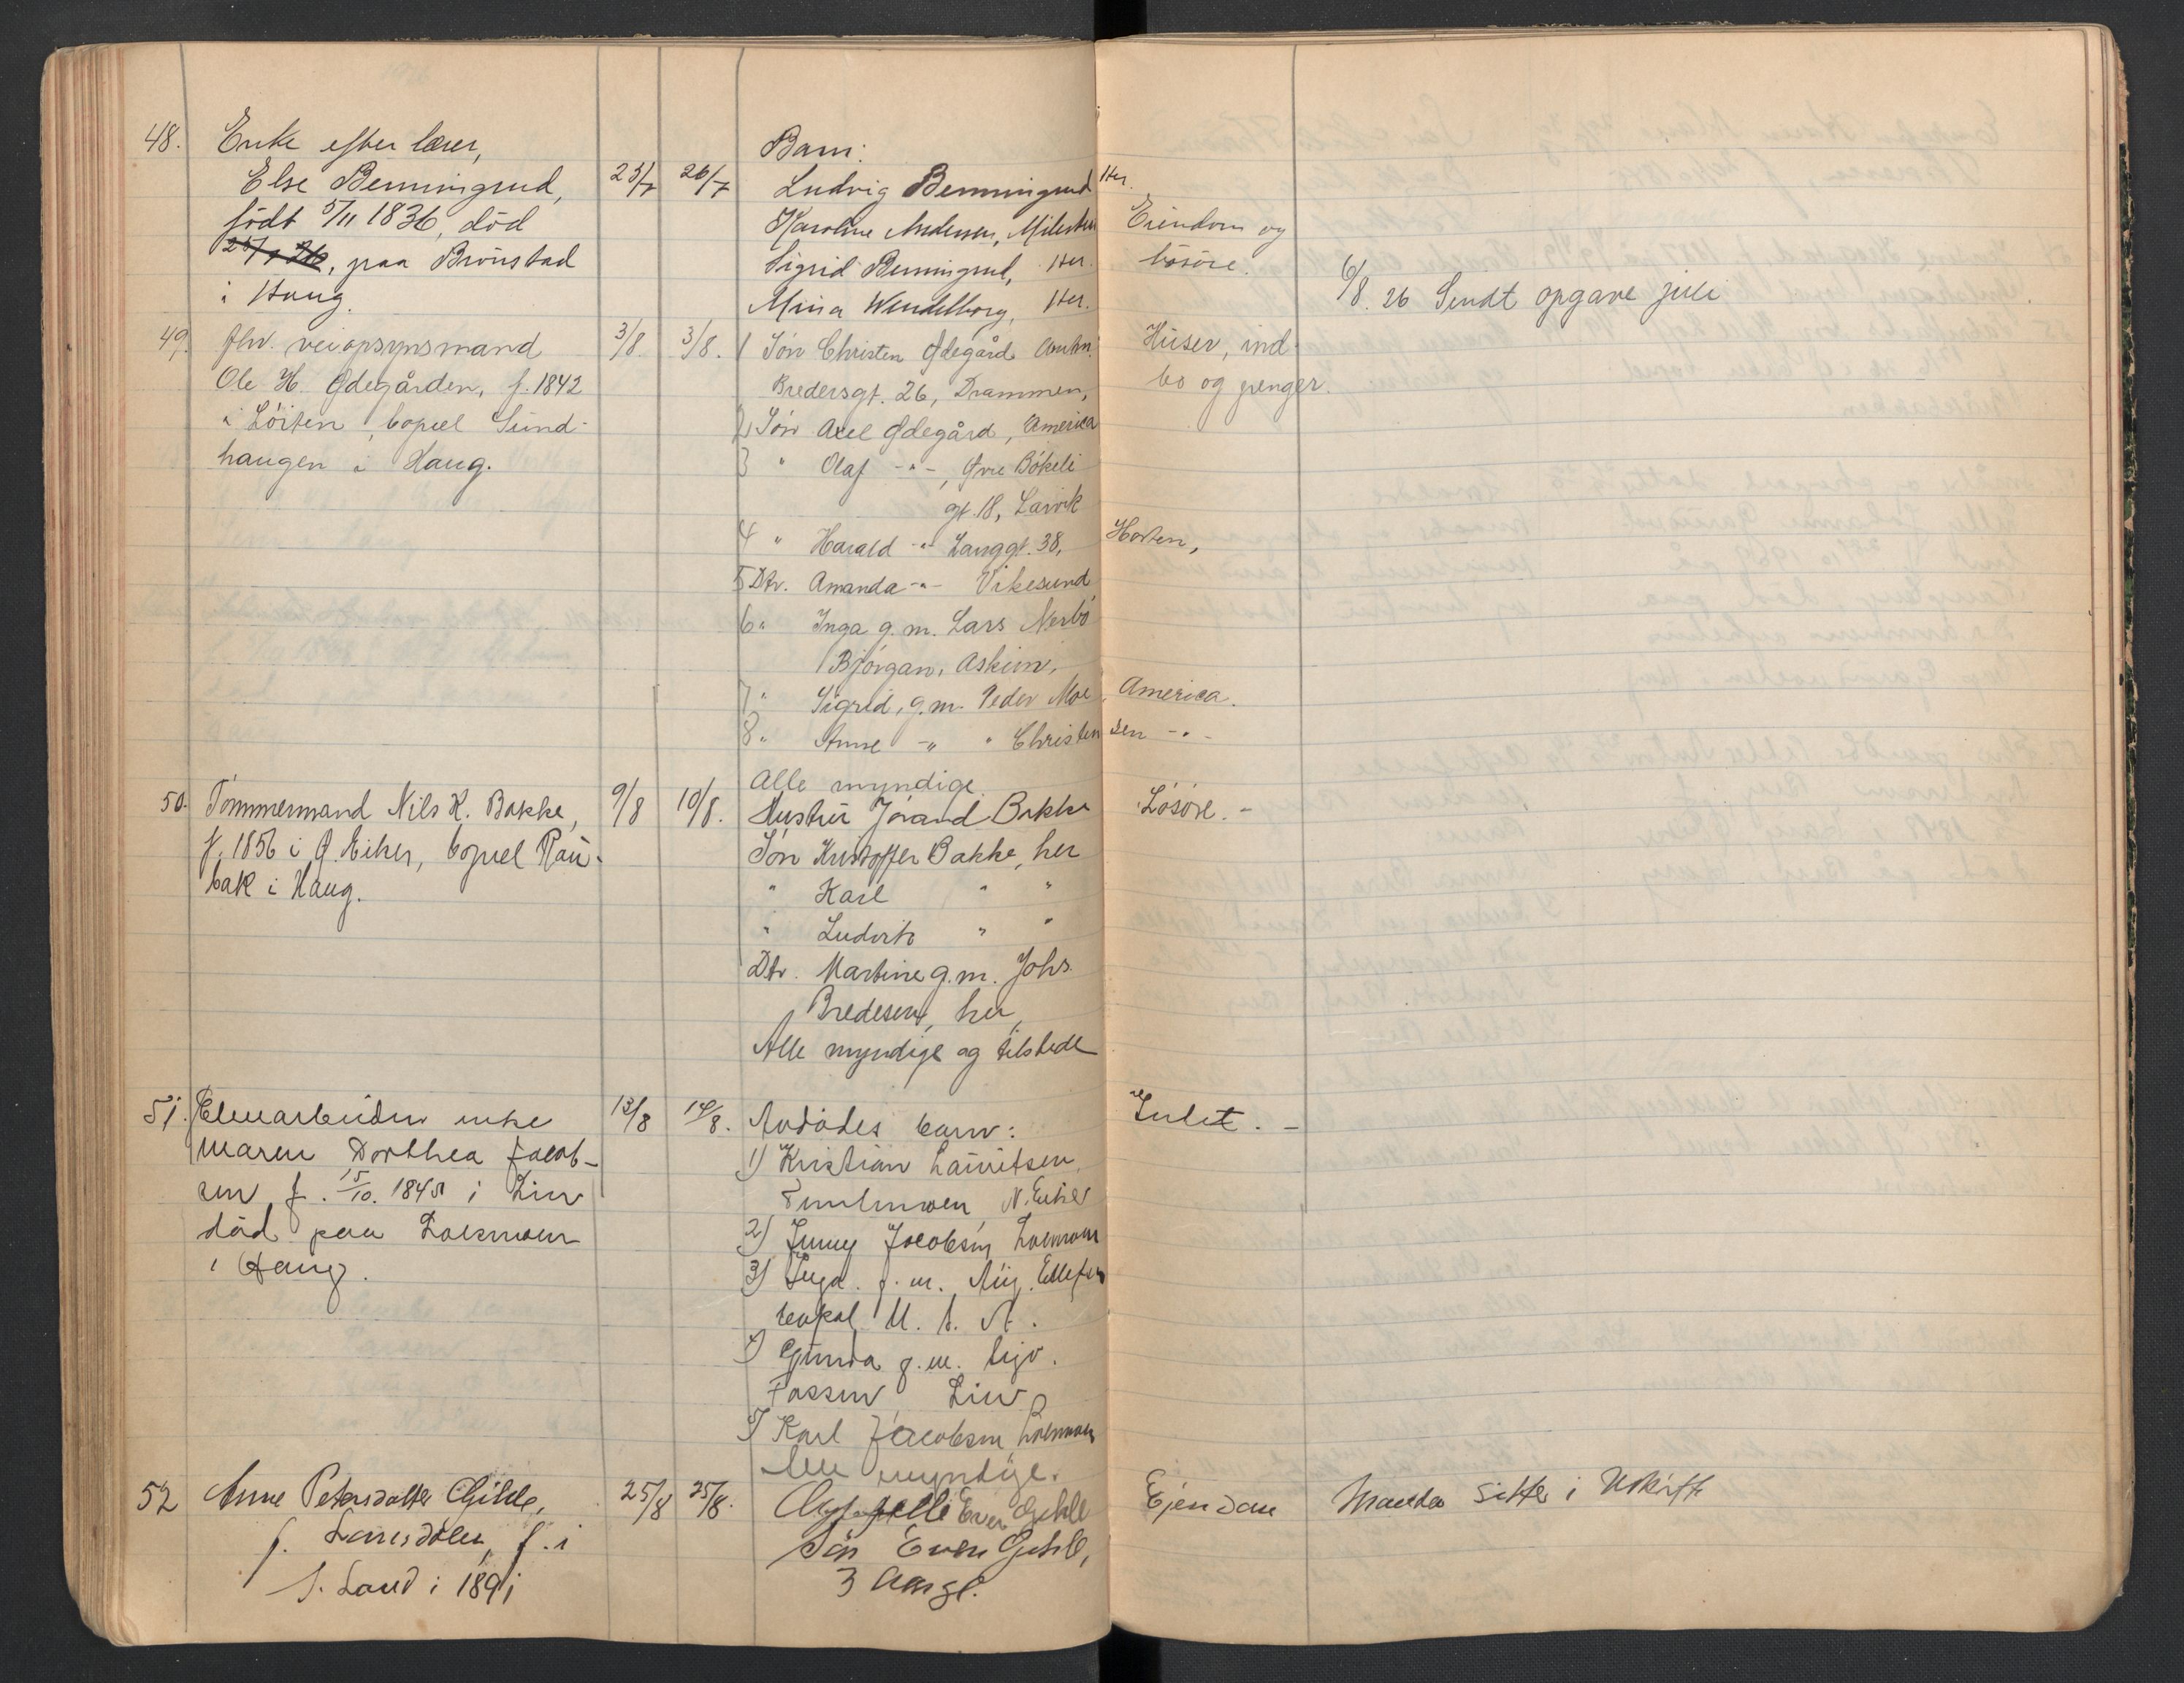 48. Enke efter lærer,
Else Benningrud,
født 5/11 1836, død
25/7 26, paa Brönstad
i Haug.
25/7 26/7
Barn:
Ludvig Benningrud Her.
Karoline Andersen,
Sigrid Benningrud, Her.
Mina Wendelborg, Her.
Eiendom og
lösöre.
6/8. 26 Sendt opgave juli
49. fhv. veiopsynsmand
Ole H. Ødegården, f. 1842
i Löiten, bopæl Sund-
haugen i Haug.
3/8. 3/8.
1 Sön Christen Ødegård
Bredersgt. 26, Drammen,
2 Sön Axel Ødegård, America
3 " Olaf -"-, Øvre Bökeli
gt. 18, Larvik
4 " Harald -"- Langgt. 38, Horten,
5 Dtr. Amanda -"- Vikesund
6 " Inga g. m. Lars Nerbö
Bjørgan, Askim,
7 " Sigrid, g. m. Peder Moe, America.
8 " Anne -"- " Christensen -"-
Alle myndige.
Huser, ind-
bo og penger.
50. Tömmermand Nils K. Bakke,
f. 1856 i Ø. Eiker, bopæl Rau-
bak i Haug.
9/8 10/8.
Hustru Jörand Bakke
Sön Kristoffer Bakke, her
" Karl " "
" Ludvik " "
Dtr. Martine g. m. Johs.
Bredesen, her
Alle myndige og tilstede
Lösöre. -
51. Elvearbeider enke
Maren Dorthea Jacob-
sen f. 15/10. 1845 i Lier
död paa Loesmoen
i Haug.
13/8 14/8.
Avdödes barn:
1) Kristian Lauritsen,
N. Eiker
2) Jenny Jacobsen, Loesmoen
3) Inga g. m. Aug. Ellefsen
U. S. A.
4) Gunda g. m. Sigv.
Fossen, Lier
5) Karl Jacobsen, Loesmoen
Alle myndige.
Intet. -
52 Anne Petersdatter Gihle,
f. i
S. Land i 1891
25/8 25/8.
Even Gihle
Sön Even Gihle,
3 Aar gl.
Eiendom
Manden sitter i Uskifte